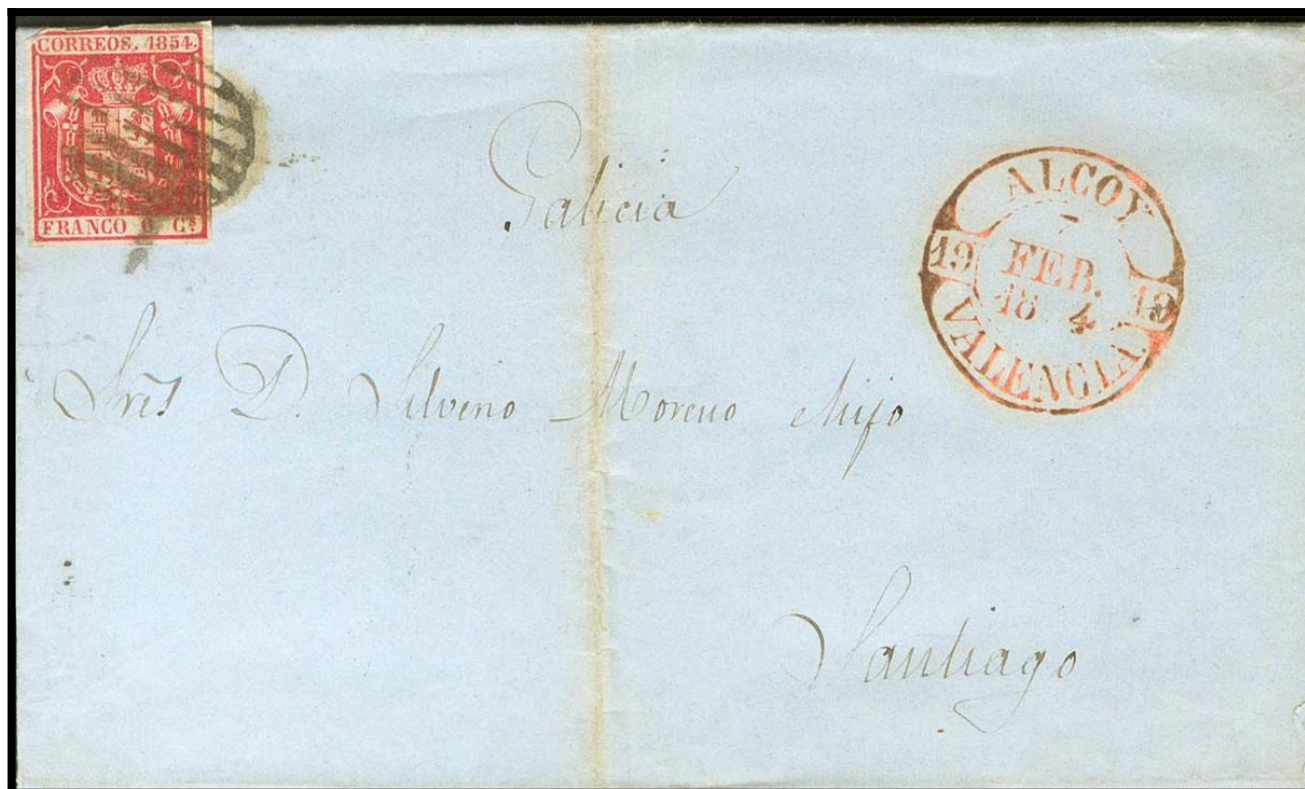 CORREOS. 1854.
FRANCO 6 Cs
Galicia
ALCOY
7
FEB.
18 4
19 19
VALENCIA.
Sres D. Silverio Moreno e hijo
Santiago